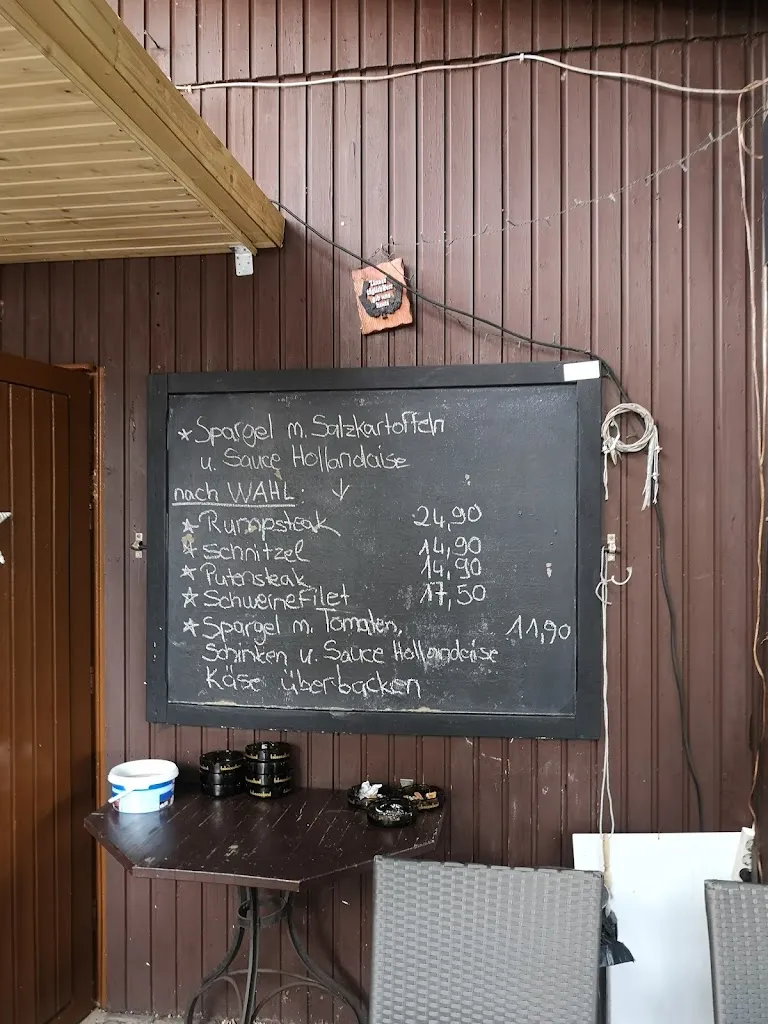 * Spargel m. Salzkartoffeln
u. Sauce Hollandaise
nach WAHL: ↓
* Rumpsteak 24,90
* Schnitzel 14,90
* Putensteak 14,90
* Schweinefilet 17,50
* Spargel m. Tomaten, 11,90
Schinken u. Sauce Hollandaise
Käse überbacken